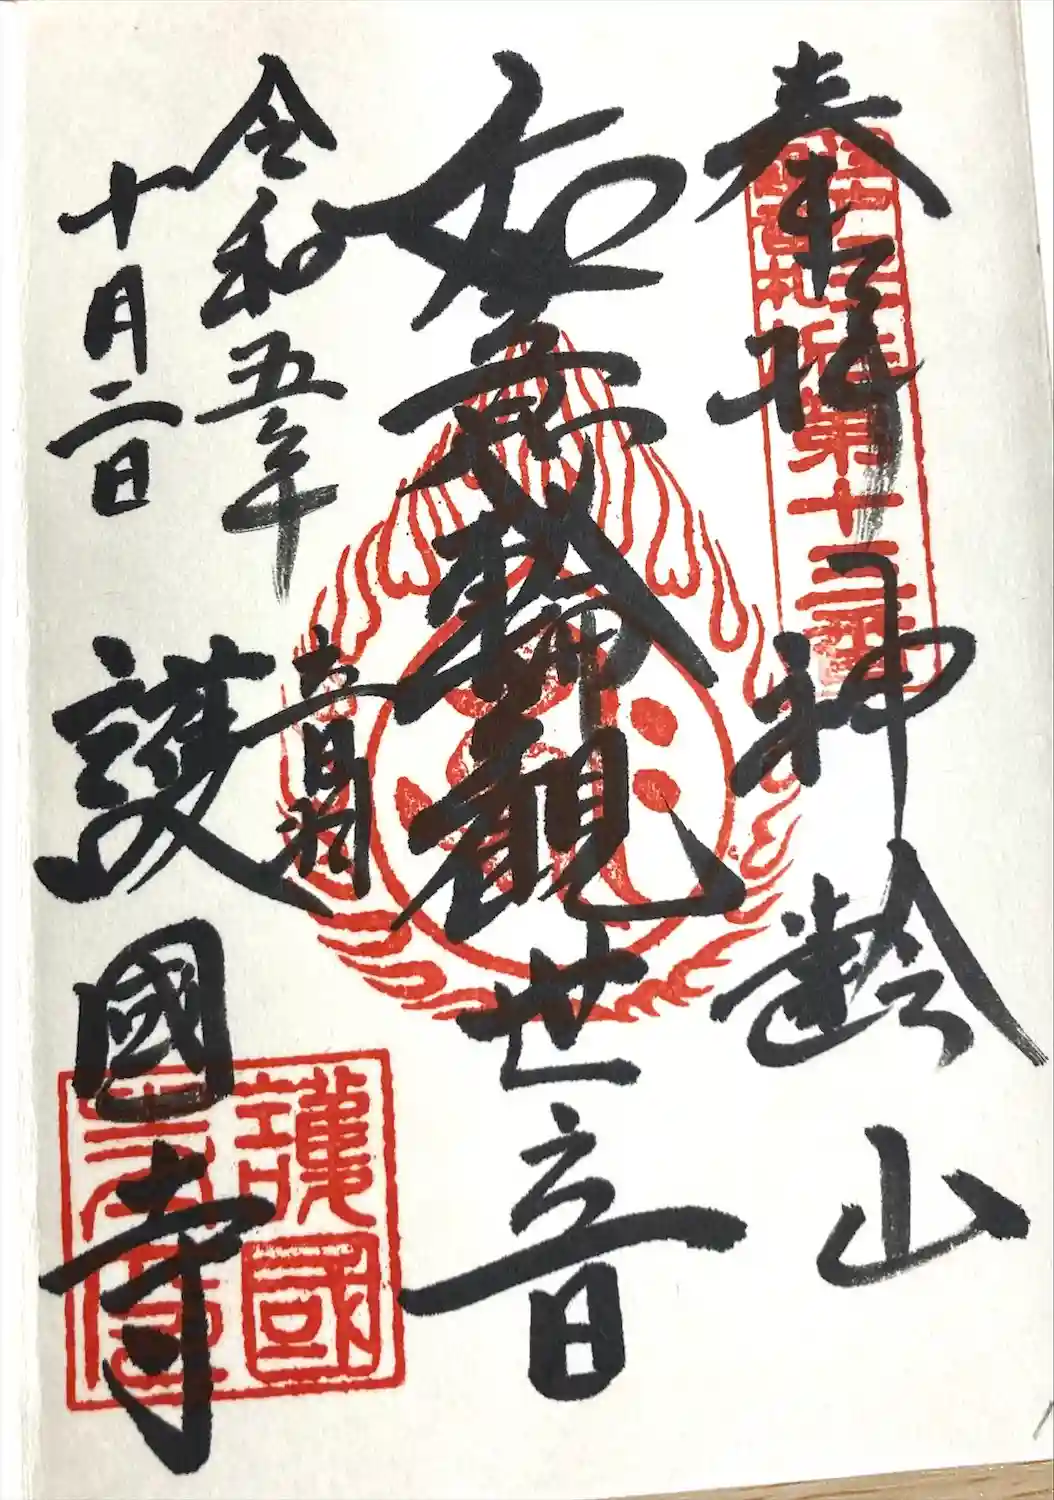 奉拝 神齢山
第十三番
如意輪觀世音
令和五年
十月二日
音羽
護國寺
護國